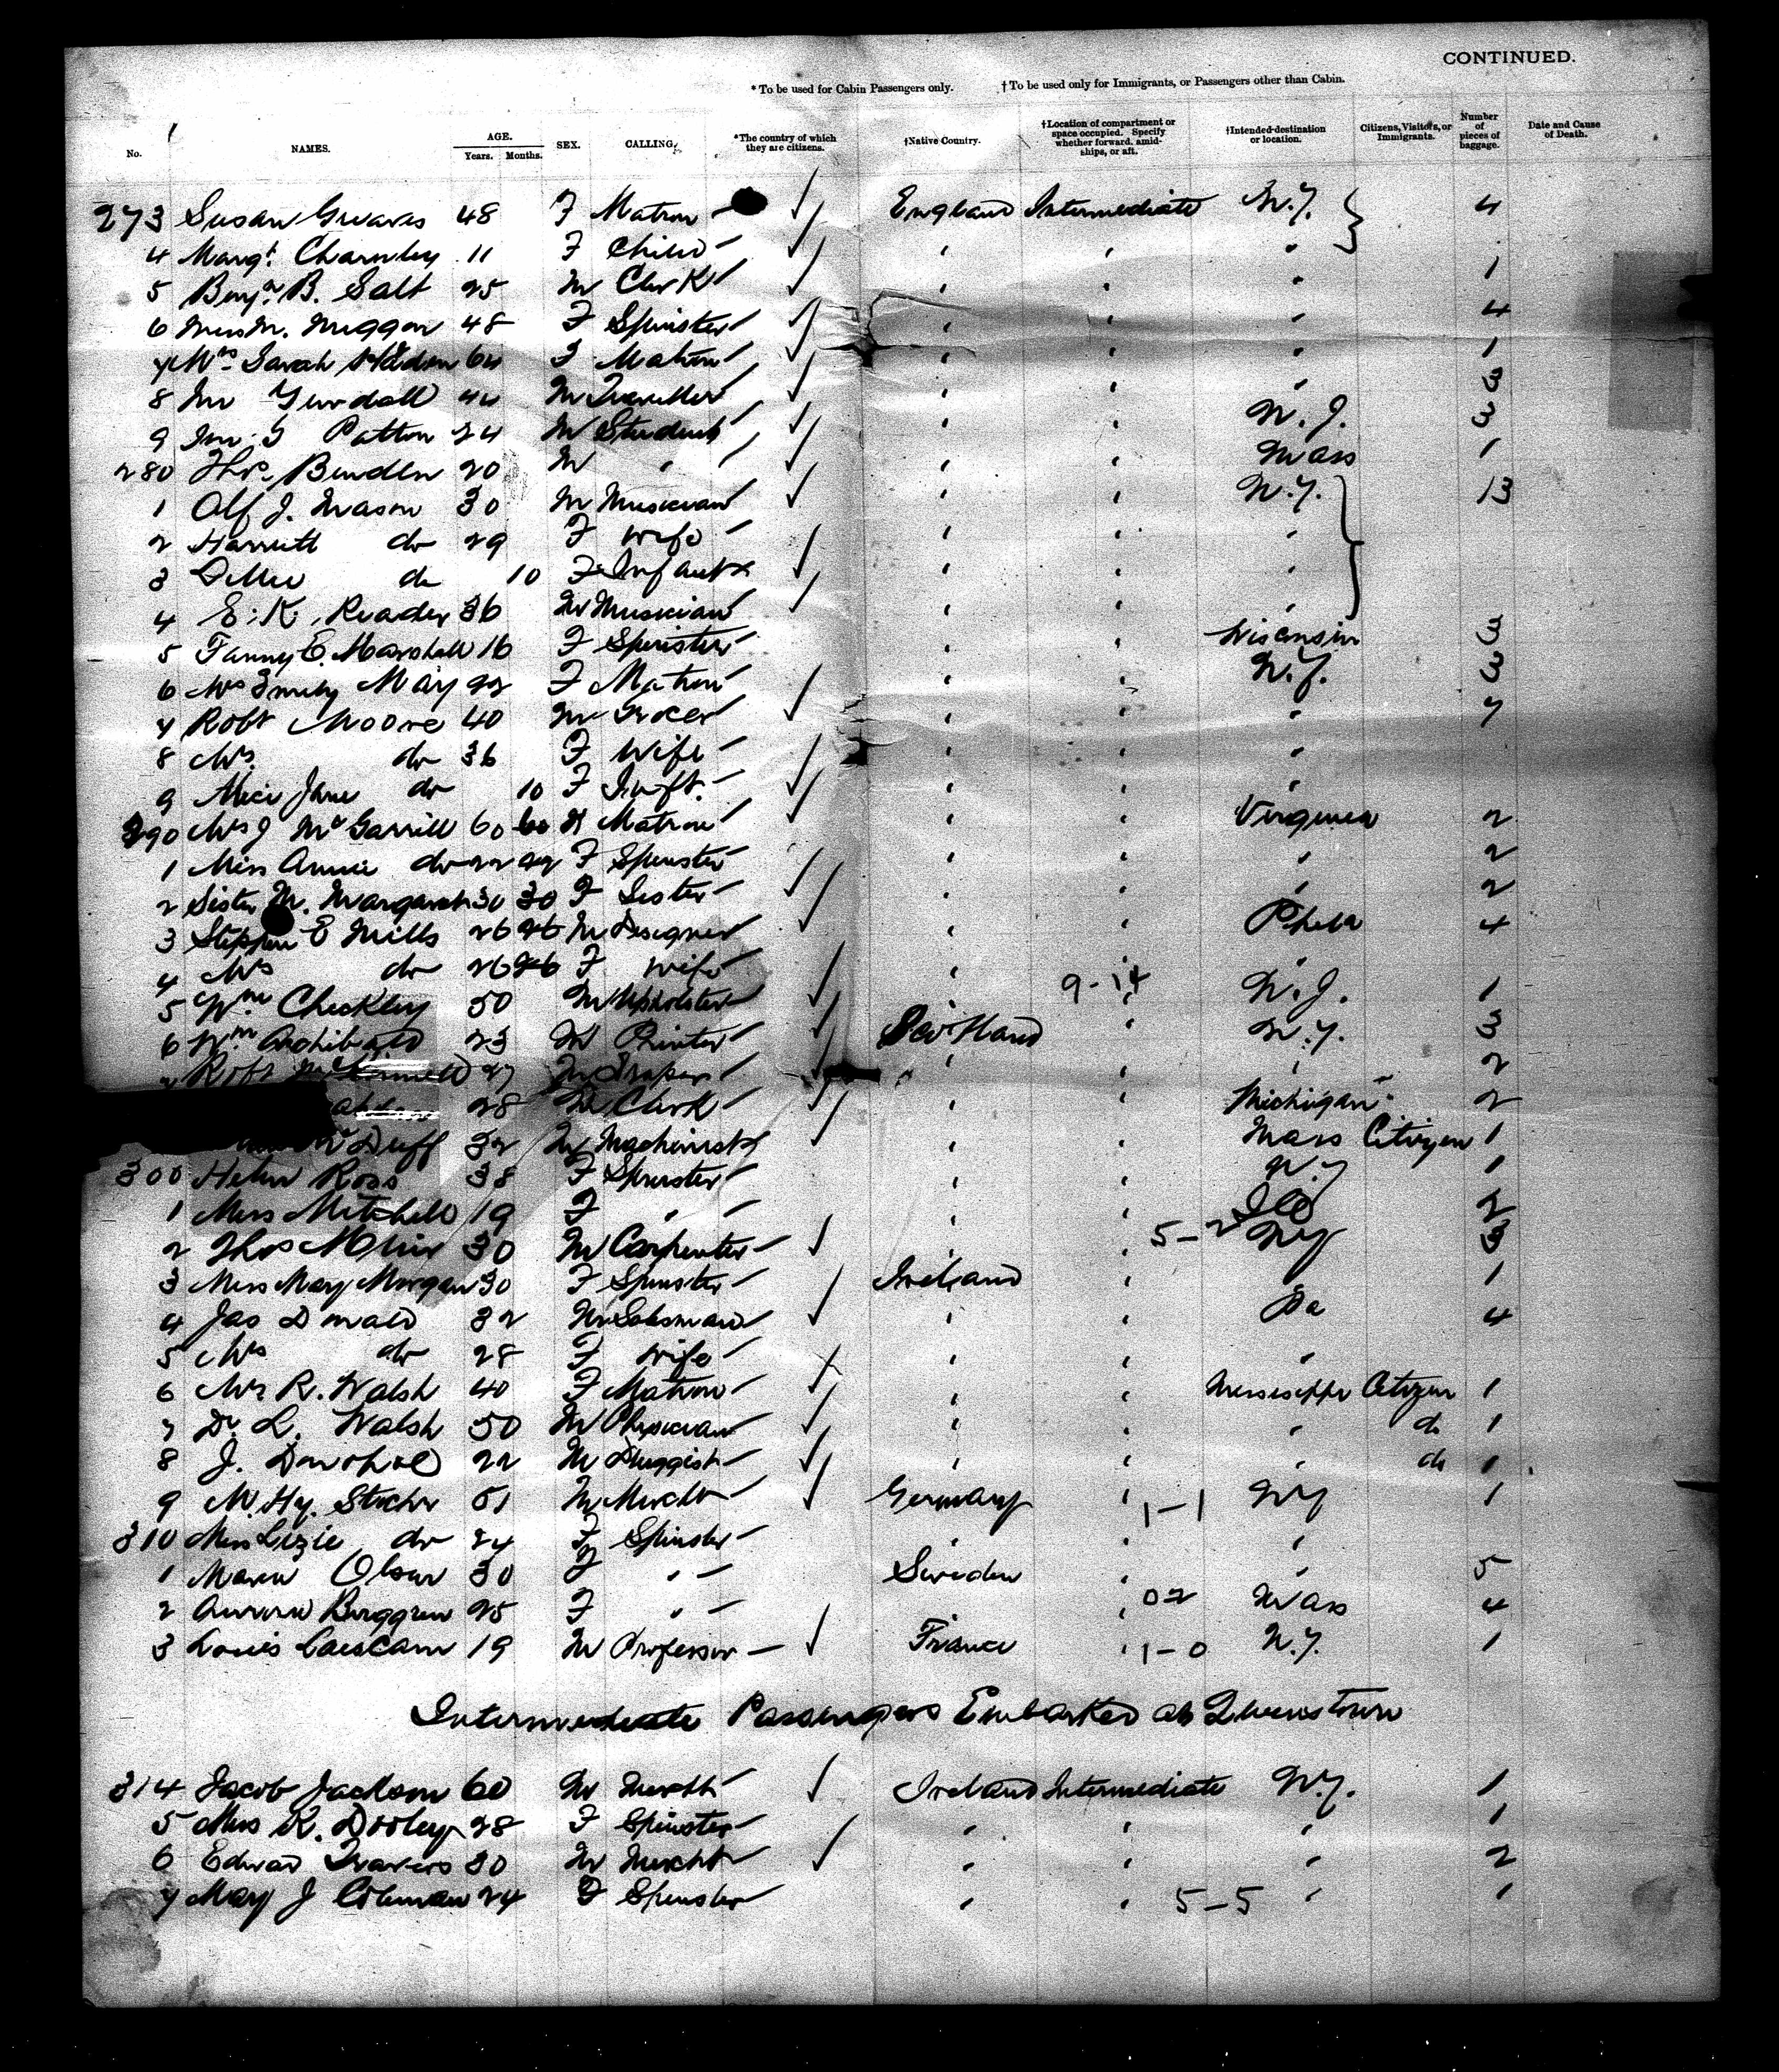 CONTINUED.
* To be used for Cabin Passengers only. † To be used only for Immigrants, or Passengers other than Cabin.
No. NAMES. AGE. Years. Months. SEX. CALLING. *The country of which they are citizens. †Native Country. †Location of compartment or space occupied. Specify whether forward, amidships, or aft. †Intended destination or location. Citizens, Visitors, or Immigrants. Number of pieces of baggage. Date and Cause of Death.
273 Susan Greaves 48 F Matron England Intermediate N.Y. 4
4 Margt. Charnley 11 F Child " " "
5 Benjn. B. Salt 25 M Clerk " " " 1
6 Miss M. 48 F Spinster " " " 4
7 Mrs Sarah 64 F Matron " " " 1
8 Mr 44 M Traveller " " " 3
9 Patton 24 M Student " " N.J. 3
280 Thos. 20 M " " " Mass 1
1 Alf J. Mason 30 M Musician " " N.Y. 13
2 Harriett do 29 F Wife " " "
3 do 10 F Infant " " "
4 E. K. Reader 36 M Musician " " "
5 Fanny E. Marshall 16 F Spinster " " Wisconsin 3
6 Mrs Emily May 22 F Matron " " N.Y. 3
7 Robt Moore 40 M Grocer " " " 7
8 Mrs. do 36 F Wife " " "
9 Alice Jane do 10 F Inft. " " "
290 Mrs J McGarrill 60 60 F Matron " " Virginia 2
1 Miss Annie do 22 22 F Spinster " " " 2
2 Sister M. Margaret 30 30 F Sister " " " 2
3 Stephen E Mills 26 26 M Designer " " Phila 4
4 Mrs do 26 26 F Wife " " "
5 Wm Checkley 50 M Upholster " 9-14 N.J. 1
6 Wm Archibald 23 M Printer Scotland " N.Y. 3
7 Robt 27 M Draper " " " 2
28 M Clerk " " Michigan 2
McDuff 32 M Machinist " " Mass Citizen 1
300 Helen Ross 38 F Spinster " " N.Y 1
1 Miss Mitchell 19 F " " " Ill 2
2 Thos 30 M Carpenter " " 5-2 NY 3
3 Miss May Morgan 30 F Spinster Ireland " " 1
4 Jas Donald 32 M Salesman " " Pa 4
5 Mrs do 28 F Wife " " "
6 Mrs R. Walsh 40 F Matron " " Mississippi Citizen 1
7 Dr. L. Walsh 50 M Physician " " " do 1
8 J. 22 M Druggist " " " do 1
9 M. Hy. 51 M Mercht Germany " 1-1 NY 1
310 Miss Lizie do 24 F Spinster " " "
1 Olsen 30 F " Sweden " " 5
2 Berggren 25 F " " " 02 Mass 4
3 Louis 19 M Professor France " 1-0 N.Y. 1
Intermediate Passengers Embarked at Queenstown
314 Jacob Jackson 60 M Mercht Ireland Intermediate N.Y. 1
5 Miss K. Dooley 28 F Spinster " " " 1
6 Edward Travers 30 M Mercht " " " 2
7 May J Coleman 24 F Spinster " " 5-5 " 1